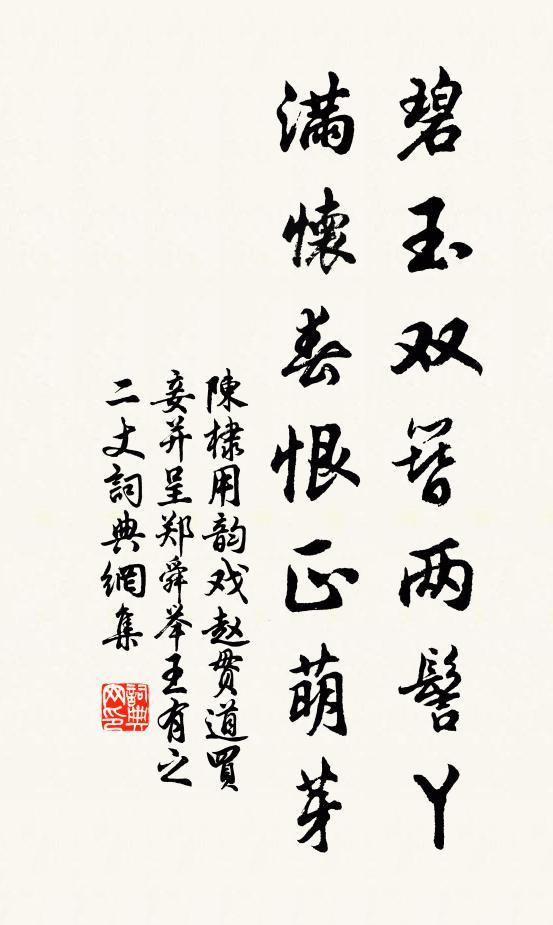 碧玉双簪两髻丫
满懷春恨正萌芽
陳棣用韵戏赵贯道買
妾并呈郑舜举王有之
二丈詞典網集
詞典网印